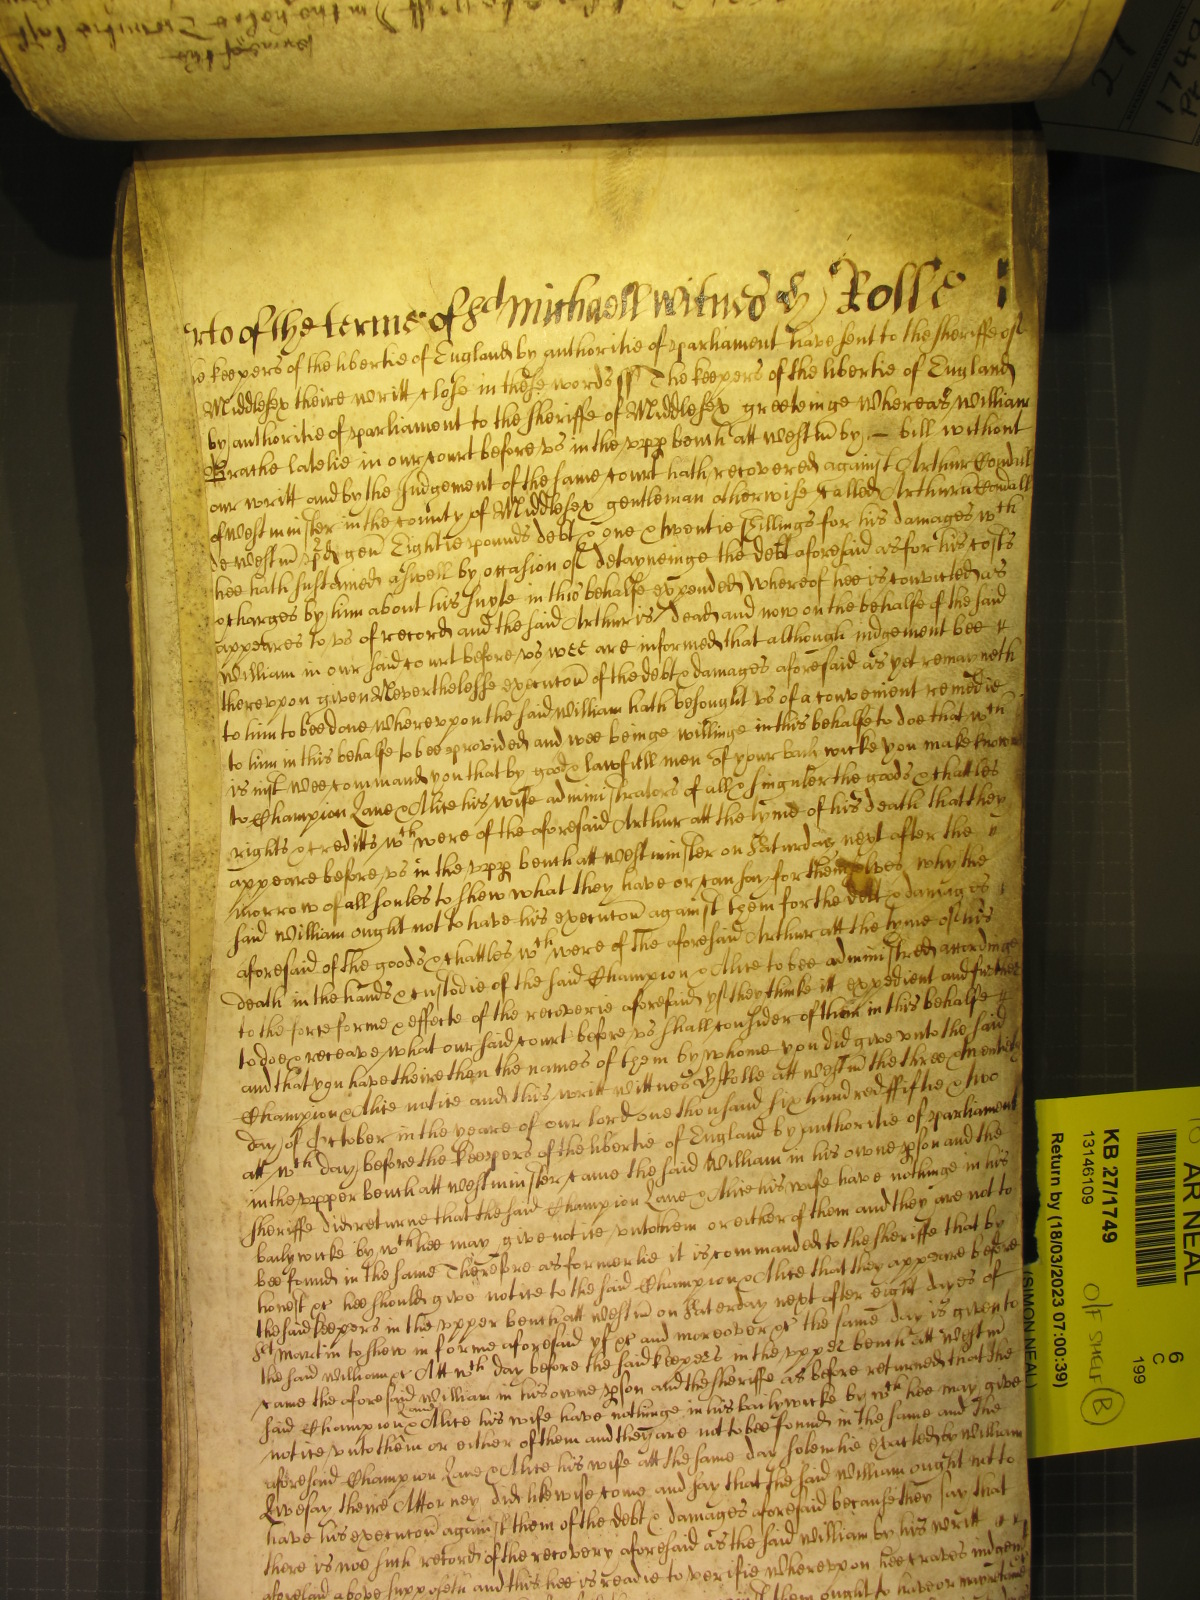 rto of the terme of St Michaell witnes H Rolle
e keepers of the libertie of England by authoritie of parliament have sent to the sheriffe of
Middlesex theire writt close in these words ss The keepers of the libertie of England
by authoritie of parliament to the sheriffe of Middlesex greeteinge Whereas William
Brathe latelie in our court before us in the upp bench att Westm by bill without
our writt and by the Judgement of the same court hath recovered against Arthur
of Westminster in the county of Middlesex gentleman otherwise called Arthur
de Westm gen Eightie pounds debt & one & twentie shillings for his damages wch
hee hath susteined aswell by occasion of deteyneinge the debt aforesaid as for his costs
& charges by him about his suyte in this behalfe expended Whereof hee is convicted as
appeares to us of record and the said Arthur is dead and now on the behalfe of the said
William in our said court before us wee are informed that although iudgement bee
thereupon given Neverthelesse execucon of the debt & damages aforesaid as yet remayneth
to him to bee done Whereupon the said William hath besought us of a convenient remedie
to him in this behalfe to bee provided and wee beinge willinge in this behalfe to doe that wch
is iust Wee command you that by good & lawfull men of your bailywicke you make knowne
to Champion Lane & Alice his wife administrators of all & singuler the goods & chattles
rights & creditts wch were of the aforesaid Arthur att the tyme of his death that they
appeare before us in the upp bench att Westminster on Saturday next after the
morrow of all soules to shew what they have or can say for themselves why the
said William ought not to have his execucon against them for the debt & damages
aforesaid of the goods & chattles wch were of the aforesaid Arthur att the tyme of his
death in the hands & custodie of the said Champion & Alice to bee administred accordinge
to the force forme & effecte of the recoverie aforesaid yf they thinke itt expedient and further
to doe & receave what our said court before us shall consider of them in this behalfe
and that you have theire then the names of them by whome you did give unto the said
Champion & Alice notice and this writt Wittnes H Rolle att Westm the three & twentith
day of October in the yeare of our lord one thousand six hundred fiftie & two
att wch day before the keepers of the libertie of England by authoritie of parliament
in the upper bench att Westminster came the said William in his owne pson and the
sheriffe did returne that the said Champion Lane & Alice his wife have nothinge in his
bailywicke by wch hee may give notice unto them or either of them and they are not to
bee found in the same Therefore as formerlie it is commanded to the sheriffe that by
honest &c hee should give notice to the said Champion & Alice that they appeare before
the said keepers in the upper bench att Westm on Saterday next after eight dayes of
St Martin to shew in forme aforesaid yf &c and moreover &c the same day is given to
the said William &c Att wch day before the said keepers in the upper bench att Westm
came the aforesaid William in his owne pson and the sheriffe as before returned that the
said Champion Lane & Alice his wife have nothinge in his bailywicke by wch hee may give
notice unto them or either of them and they are not to bee found in the same and the
aforesaid Champion Lane & Alice his wife att the same day solemlie exacted by William
Livesay theire Attorney did likewise come and say that the said William ought not to
have his execucon against them of the debt & damages aforesaid because they say that
there is noe such record of the recovery aforesaid as the said William by his writt
aforesaid above supposeth and this hee is readie to verifie Whereupon hee craves iudgemt
them ought to have or
AR NEAL
KB 27/1749
13146109
Return by (18/03/2023 07:00:39)
(SIMON NEAL)
6
C
199
O/F SHELF B
27